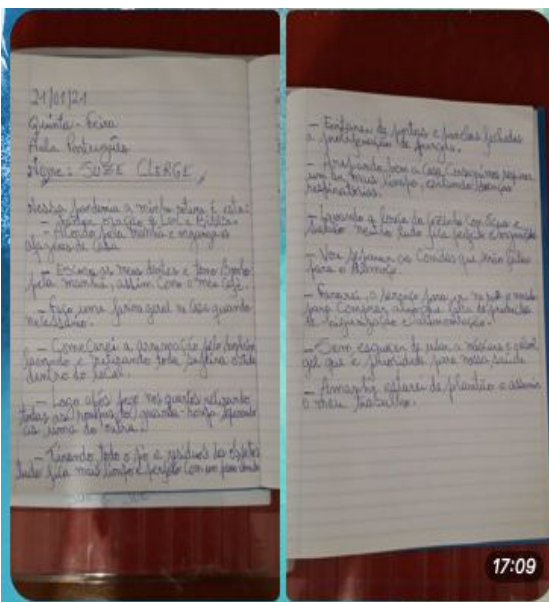 21/01/21
Quinta-feira
Aula Português
Nome: SUZE CLERGE
Nessa pandemia a minha rotina é esta:
oração e
- Acordo pela manhã e organizo os
afazeres de casa
- Escovo os meus dentes e tomo banho
pela manhã, assim como o meu café.
- Faço uma faxina geral na casa quando
necessário.
- Começarei a arrumação pelo banheiro
lavando e retirando toda sujeira
dentro do local.
- Logo após faço nos quartos retirando
todas as roupas do guarda-roupa
as uma do outra.
- Tirando todo o pó e resíduos dos objetos
tudo fica mais limpo e perfeito com um pano úmido
- de portas e janelas fechadas
a proliferação de fungos.
- bem a casa conseguimos respirar
um ar mais limpo, evitando doenças
respiratórias.
- Lavando a louça da cozinha com
sabão neutro tudo fica perfeito e organizado
- Vou separar as comidas que serão feitas
para o almoço.
- o serviço para ir na rua o mercado
para comprar algo que falta de produtos
de higienização e alimentação.
- Sem esquecer de usar a máscara e álcool
gel que é prioridade para nossa saúde
- Amanhã estarei de plantão e
o meu trabalho.
17:09